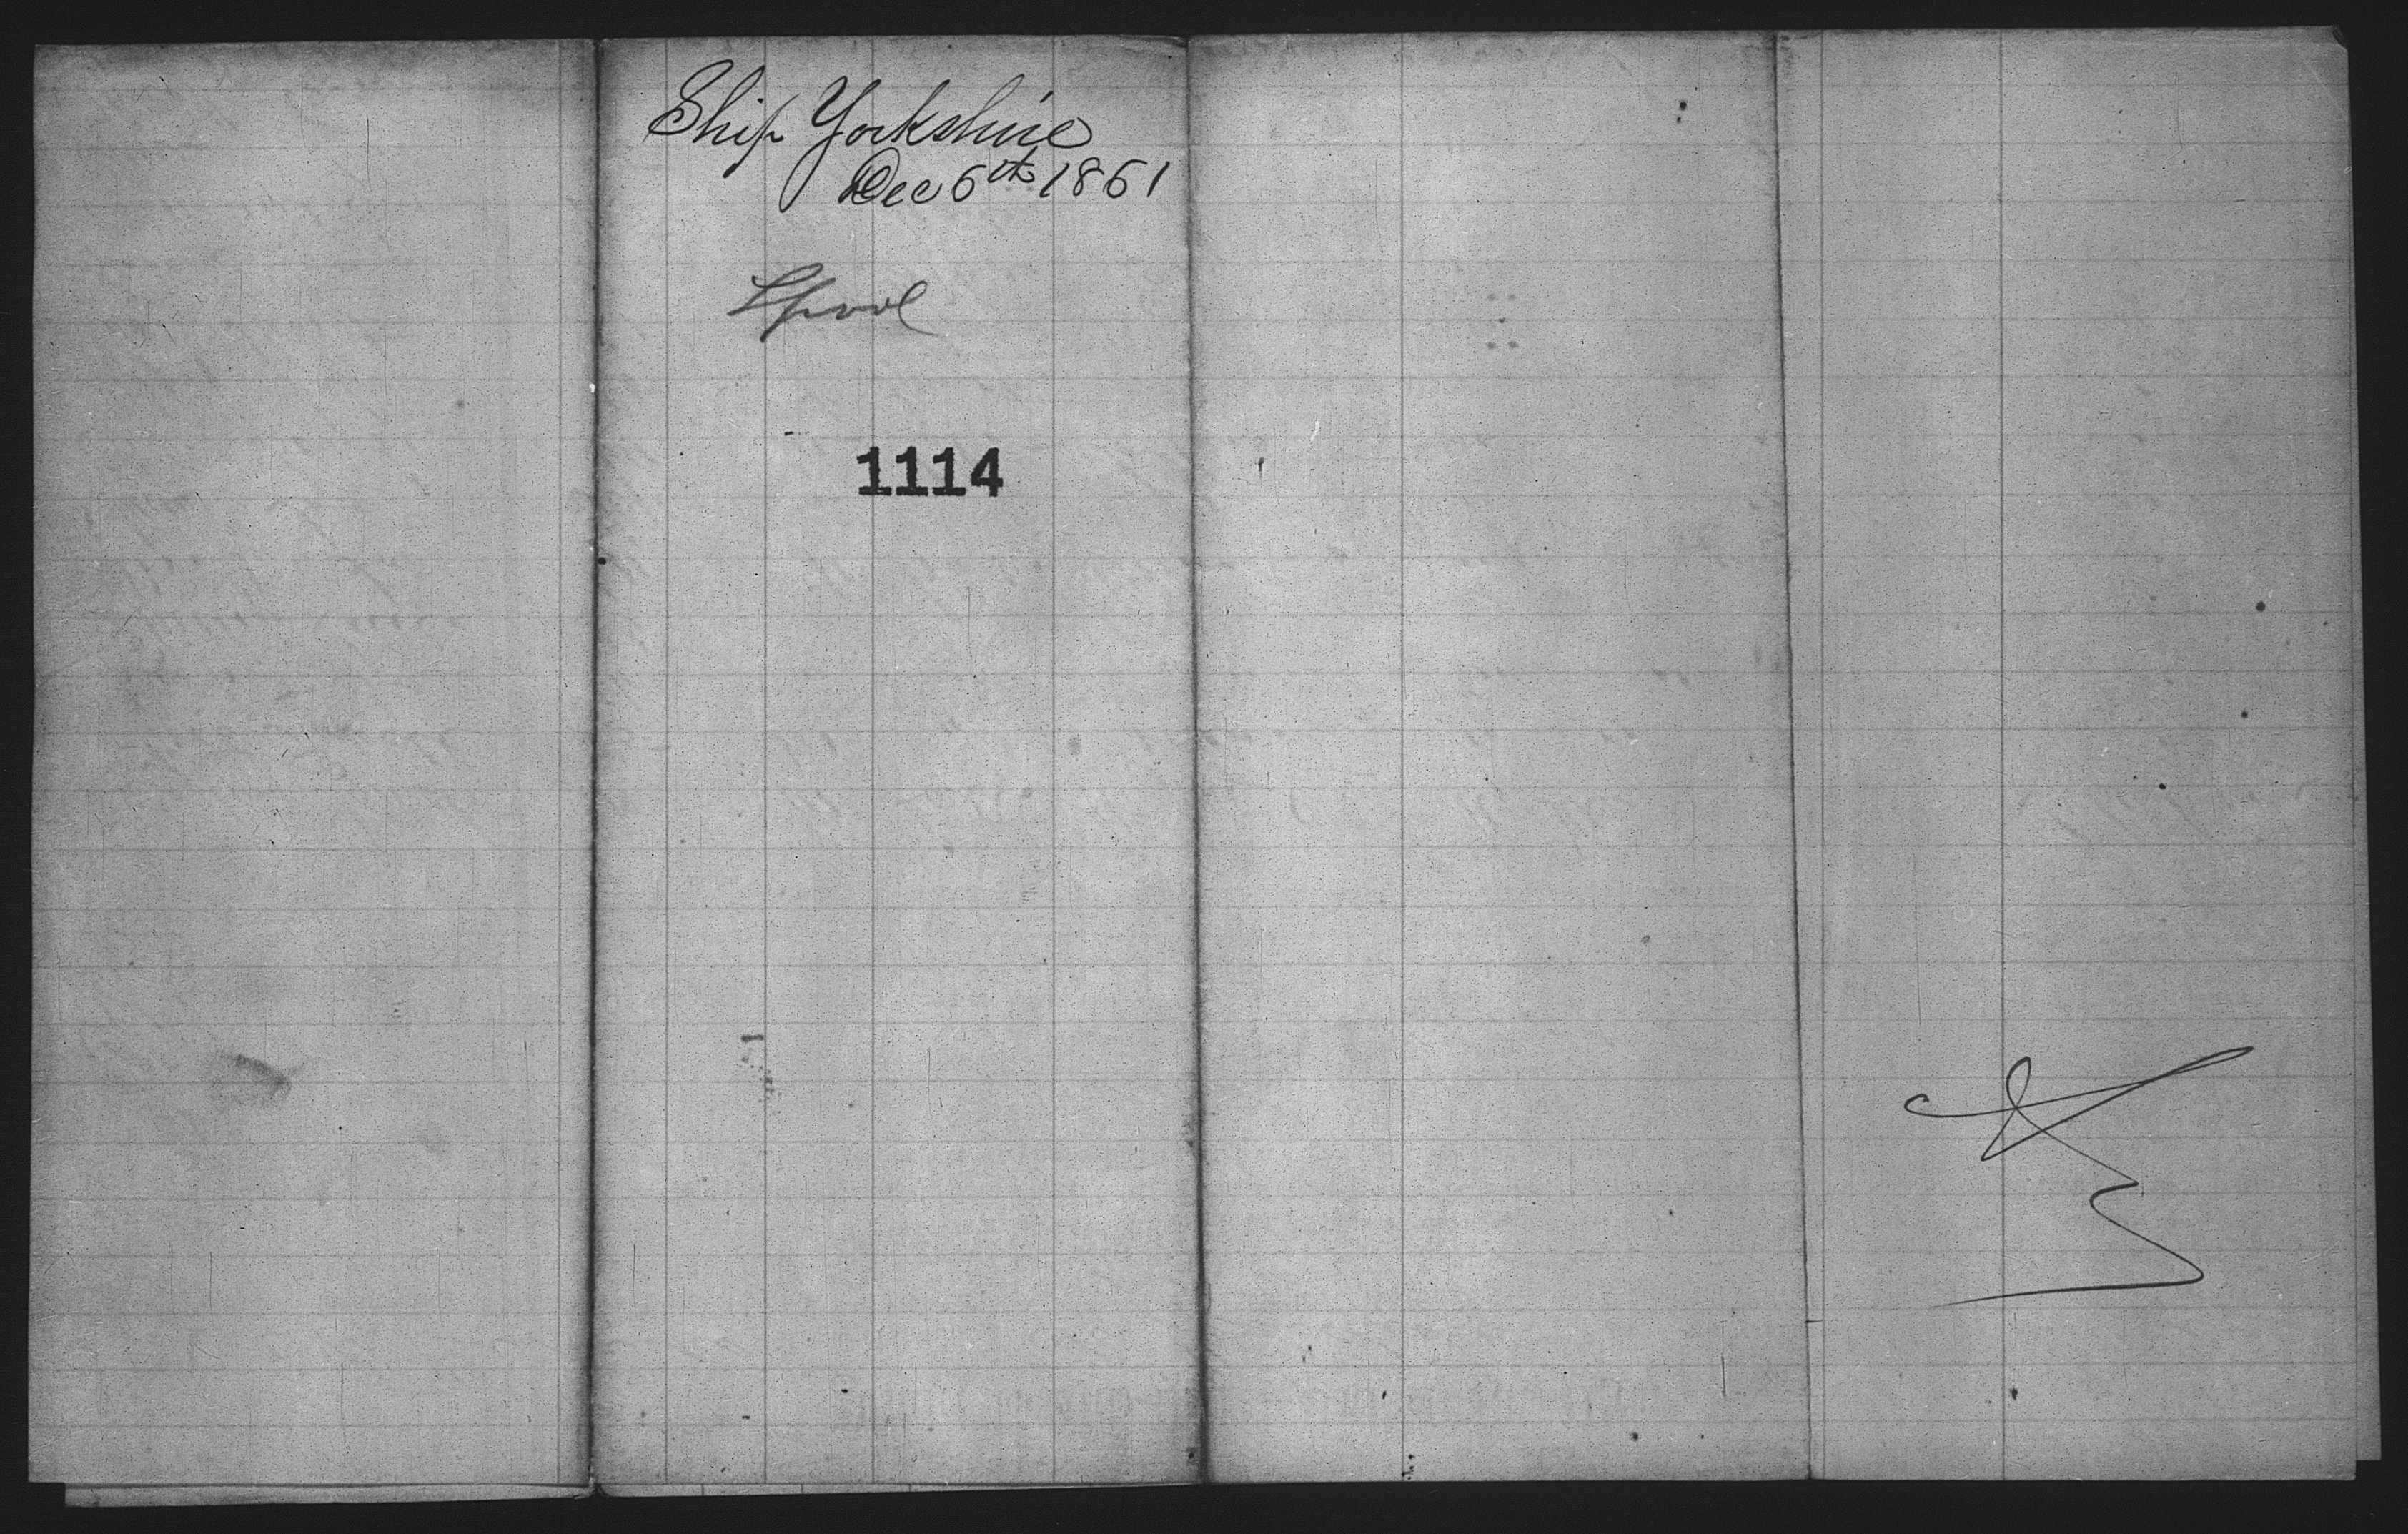 Ship Yorkshire
Dec 6th 1861
Lpool
1114